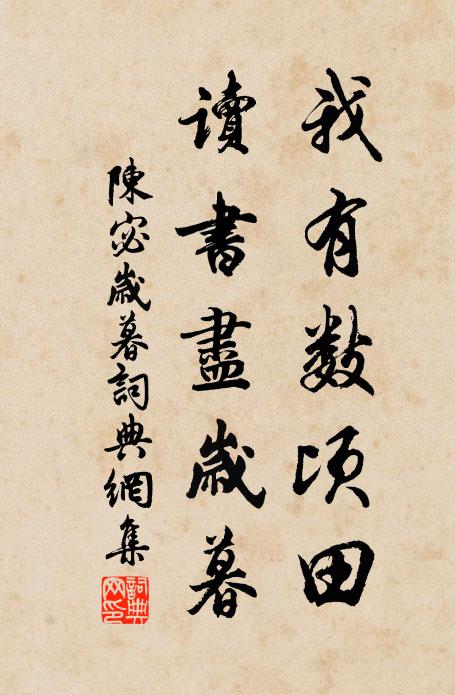 我有数頃田
讀書盡歲暮
陳宓歲暮詞典網集
詞典网印